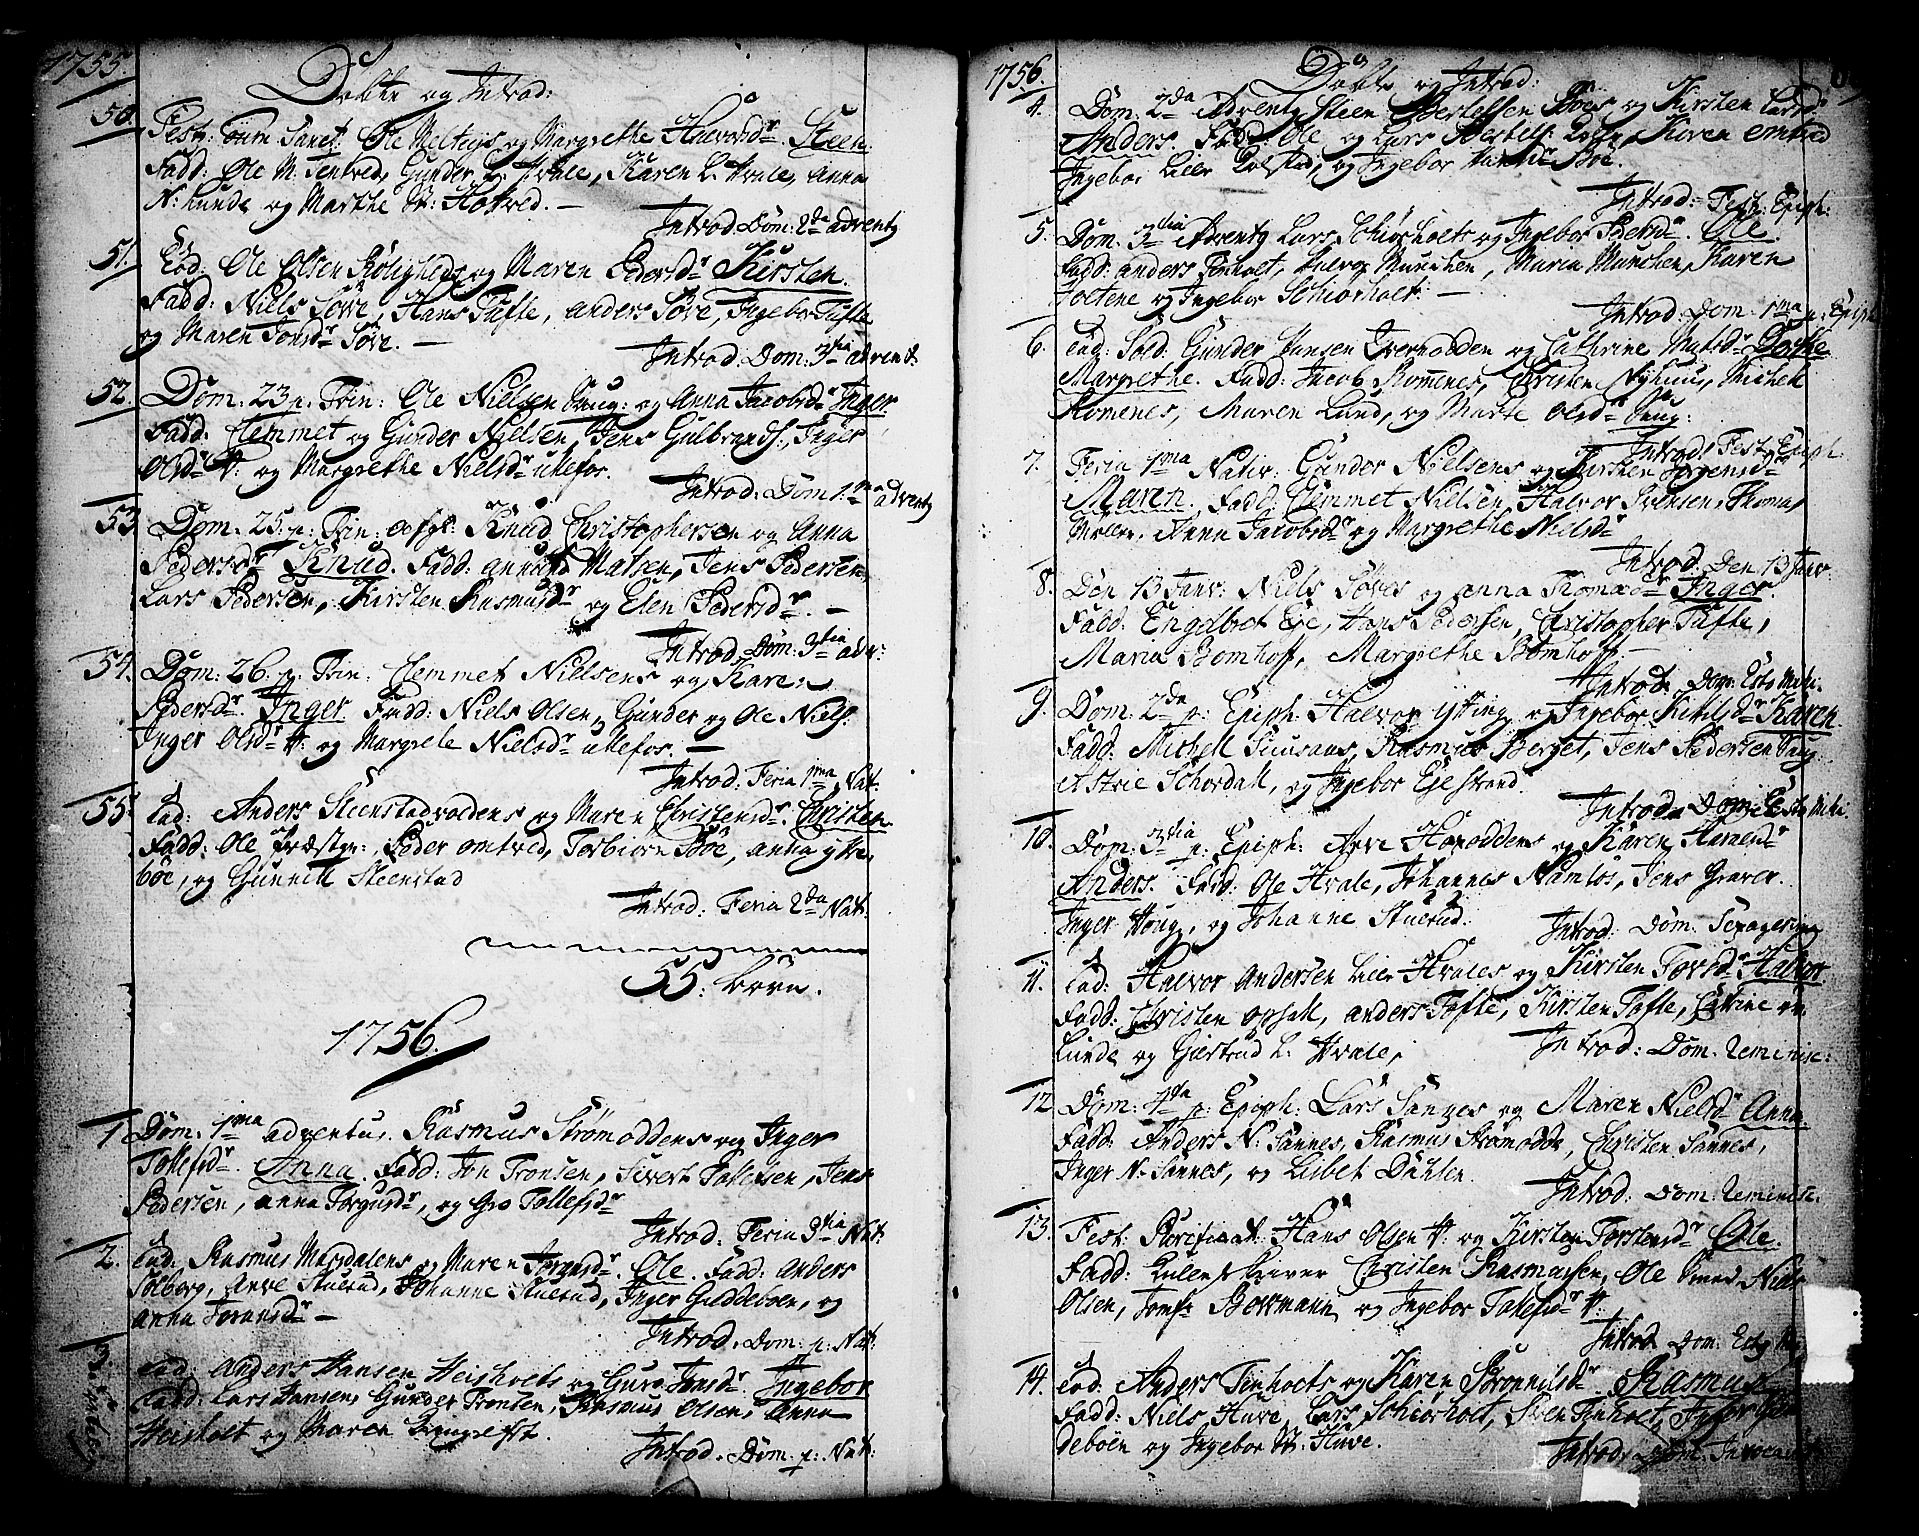 1755.
Døbte og Introd:
50. Fest: Omn: Sanct: Ole Melteys og Margrethe Halvorsdr. Steen.
Fadd: Ole M: Tentved, Gunder L. Hvale, Karen L. Hvale, Anna
N: Lunde og Marthe M: Hotved. —
Introd: Dom: 2da adventy
51. Eod: Ole Olsen Røligheds og Maren Pedersdr Kirsten.
Fadd: Niels Søve, Hans Tufte, anders Søve, Ingebor Tufte
og Maren Jonsdr Søve. —
Introd: Dom: 3tia advent.
52. Dom: 23 p. Trin: Ole Nielsen Haug: og Anna Jacobsdr Inger
Fadd: Clemmet og Gunder Nielsen, Jens Gulbrands:, Inger
Olsdr H: og Margrethe Nielsdr Ulefos.
Introd: Dom 1ma adventy
53. Dom: 25. p: Trin: afgl: Knud Christophersen og Anna
Pedersdr Knud. Fadd: Matsen, Jens Pedersen,
Lars Pedersen, Kirsten Rasmusdr og Elen Pedersdr. —
Introd: Dom: 3tia adv:
54. Dom: 26. p. Trin: Clemmet Nielsens og Karen
Pedersdr. Inger Fadd: Niels Olsen, Gunder og Ole Niels:
Inger Olsdr H: og Margrete Nielsdr Ulefos. —
Introd: Feria 1ma Nat:
55. Eod: Anders Steenstadvoldens og Maren Christensdr. Christen
Fadd: Ole Præstgr: Peder omtved, Torbiørn Bøe, anna ytre
bøe, og Gunnill Steenstad
Introd: Feria 2da Nat:
55. børn.
1756.
1 Dom. 1ma adventus. Rasmus Strømoddens og Inger
Tollefsdr. Anna. Fadd: Jon Tronsen, Sivert Tollefsen, Jens
Pedersen, anna Torgusdr, og Gro Tollefsdr
Introd: Feria 3tia Nat:
2. Eod: Rasmus Magdalens og Maren Torgusdr. Ole. Fadd: anders
Solberg, Arve Stuerud, Johanne Stuerud, Inger Guddeboen, og
anna Joransdr —
Introd. Dom: p: Nat:
3. Eod: Anders Hansen Heisholts og Guro Jonsdr. Ingebor
Fadd: Lars Hansen, Gunder Tronsen, Rasmus Olsen, Anna
Heisholt og Maren
Introd: Dom: p: Nat:
1756.
Døbte og Introd:
4. Dom: 2da Adventy Steen Bertelsen Bøes og Kirsten Larsdr
Anders. Fadd: Ole og Lars Bertels: Karen omtved
Ingebor Lille Dolstad, og Ingebor Bøe.
Introd: Fest: Epiph:
5. Dom. 3tia Adventy Lars Schiørholts og Ingebor Pedersdr. Ole.
Fadd: anders Tinholt, Halvor Munchen, Maria Munchen, Karen
Holtene og Ingebor Schiørholt. —
Introd: Dom. 1ma p. Epiph:
6. Eod: Sold: Gunder Hansen Tverodden og Cathrine Matsdr Dorthe
Margrethe. Fadd: Jacob Romenes, Christen Nyhuus, Michel
Romenes, Maren Lund, og Marte Olsdr Haug:
Introd: Fest: Epiph:
7. Feria 1ma Nativ: Gunder Nielsens og Kirsten Jørgensdr
Maren. Fadd: Clemmet Nielsen, Halvor Svensen, Thomas
Møller. Anna Jacobsdr og Margrethe Nielsdr
Introd: Den 13 Janv:
8. Den 13 Janv: Niels Søves og anna Thomædr Inger.
Fadd: Engelbret Eye, Hans Pedersen, Christopher Tufte,
Maria Bomhoff, Margrethe Bomhoff. —
Introd: Dom: Esto Mihi.
9. Dom: 2da p: Epiph: Halvor Ytting og Ingebor Ketilsdr Karen
Fadd: Michell Tuusans, Rasmus Berget, Jens Pedersen Haug
Astrie Schordal, og Ingebor Eyestrand.
Introd. Dom: Esto Mihi.
10. Dom: 3tia p: Epiph: Arve Havoddens og Karen Hansdr
Anders. Fadd: Ole Hvale, Johannes Namløs, Jens Graver
Inger Houg, og Johanne Stuerud.
Introd: Dom: Septagesima
11. Eod: Halvor Andersen Lille Hvales og Kirsten Tovsdr Halvor
Fadd: Christen opsal, anders Tufte, Kirsten Tufte, Catrine
Lunde og Giertrud L. Hvale,
Introd: Dom: Reminisc:
12 Dom: 4da p: Epiph: Lars Sannes og Maren Nielsdr Anna
Fadd: Anders N: Sannes, Rasmus Strømodde, Christen Sannes,
Inger N: Sannes, og Lisbet Dahlen.
Introd: Dom: Reminisc.
13. Fest: Purificat: Hans Olsen H: og Kirsten Torstensdr Ole.
Fadd: Kulleskriver Christen Rasmusen, Ole Smed, Niels
Olsen, Jomfr: Borrmann og Ingebor Tollefsdr H:
Introd Dom: Esto M
14. Eod: Anders Tinholts og Karen Børnnilsdr Rasmus
Fadd: Niels Huve, Lars Schiørholt, Sven Tinholt, Inger
deboen og Ingebor M: Huve.
Introd: Dom: Invocavit